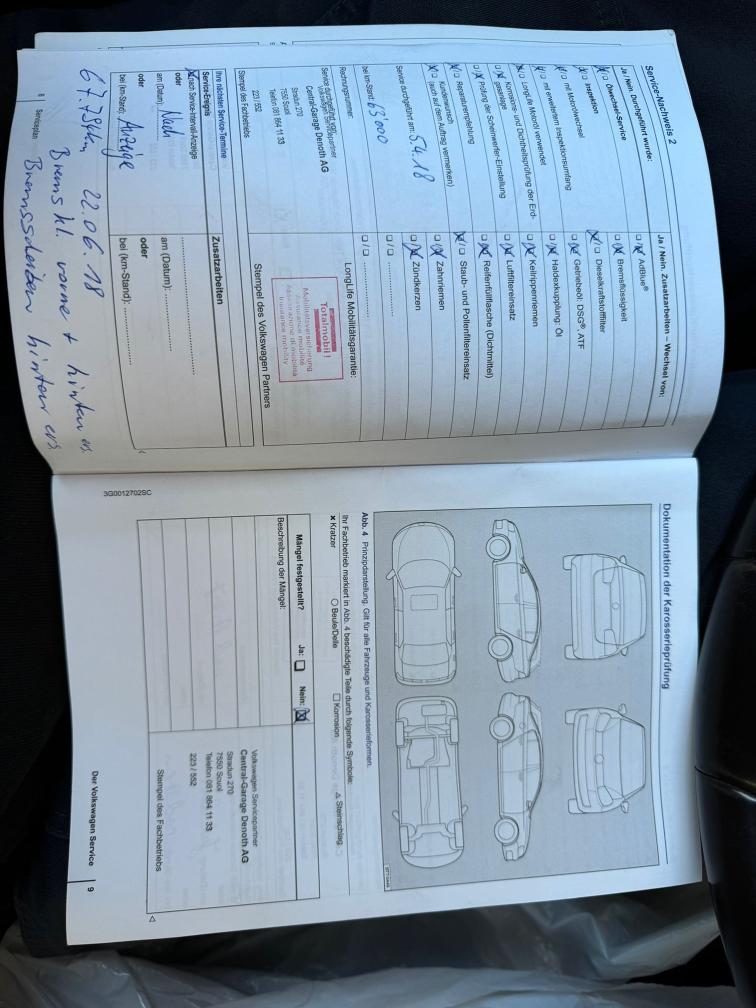 Service-Nachweis 2
Ja / Nein. Durchgeführt wurde:
Ölwechsel-Service
Inspektion
mit Motorölwechsel
mit erweitertem Inspektionsumfang
LongLife Motoröl verwendet
Korrosions- und Dichtheitsprüfung der Erd-
gasanlage
Prüfung der Scheinwerfer-Einstellung
Reparaturempfehlung
Kundenwunsch
(auch auf dem Auftrag vermerken)
Service durchgeführt am: 5.4.18
bei km-Stand: 63000
Rechnungsnummer:
Service durchgeführt von:
Central-Garage Denoth AG
Stradun 270
7550 Scuol
Telefon 081 864 11 33
223 / 552
Stempel des Fachbetriebs
Ja / Nein. Zusatzarbeiten – Wechsel von:
AdBlue®
Bremsflüssigkeit
Dieselkraftstofffilter
Getriebeöl: DSG®, ATF
Haldexkupplung: Öl
Keilrippenriemen
Luftfiltereinsatz
Reifenfüllflasche (Dichtmittel)
Staub- und Pollenfiltereinsatz
Zahnriemen
Zündkerzen
LongLife Mobilitätsgarantie:
Totalmobil!
Mobilitätsversicherung
Assurance mobilité
Assicurazione di mobilità
Insurance mobility
Stempel des Volkswagen Partners
Ihre nächsten Service-Termine
Service-Ereignis
nach Service-Intervall-Anzeige
oder
am (Datum): Nach
oder
bei (km-Stand): Anzeige
Zusatzarbeiten
am (Datum):
oder
bei (km-Stand):
67.794km 22.06.18
Bremskl. vorne + hinten ers.
Bremsscheiben hinten ers
8 Serviceplan
Dokumentation der Karosserieprüfung
Abb. 4 Prinzipdarstellung. Gilt für alle Fahrzeuge und Karosserieformen.
Ihr Fachbetrieb markiert in Abb. 4 beschädigte Teile durch folgende Symbole:
× Kratzer
○ Beule/Delle
□ Korrosion
△ Steinschlag
Mängel festgestellt? Ja: Nein:
Beschreibung der Mängel:
Volkswagen Servicepartner
Central-Garage Denoth AG
Stradun 270
7550 Scuol
Telefon 081 864 11 33
223 / 552
Stempel des Fachbetriebs
3G0012702SC
Der Volkswagen Service 9